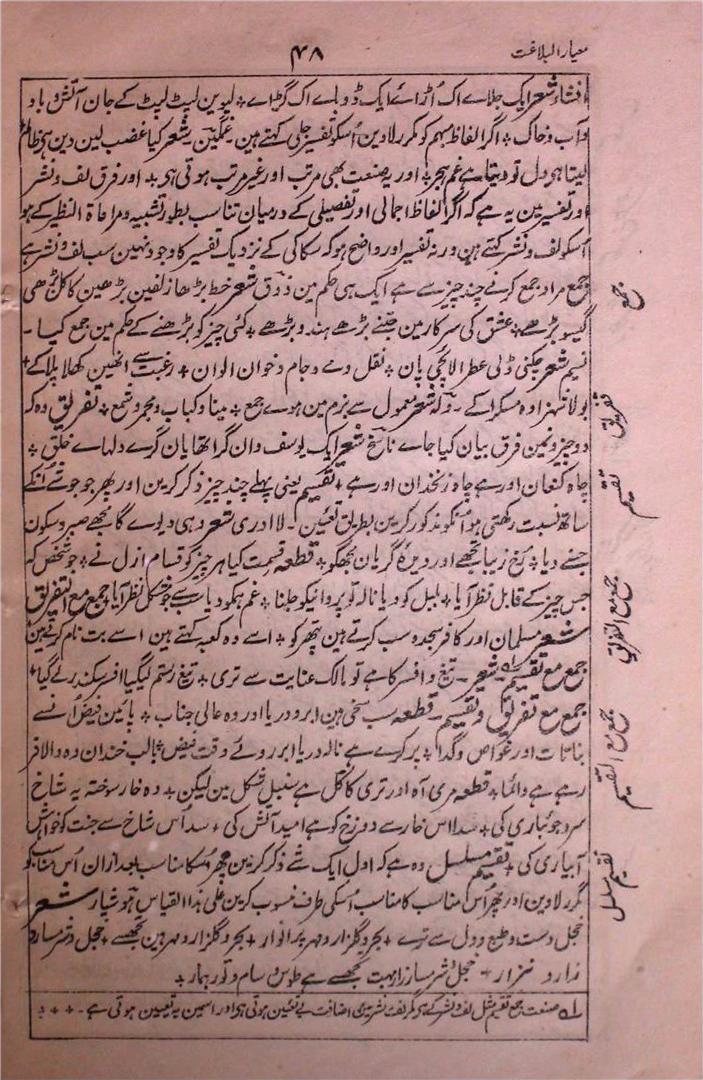 معیار البلاغت
۴۸
افشاء شعر ایک جلاے اک اُڑاے ایک ڈوباے اک گڑاے + لیوین لپٹ لپٹ کے جان آتش و باد
و آب و خاک + اگر الفاظ مبہم کو مکرر لاوین اُسکو تفسیر جلی کہتے ہین غمگین شعر کیا غضب لین دین ہی ظالم
لیتا ہی دل تو دیتا ہے غم ہجر + اور یہ صنعت بھی مرتب اور غیر مرتب ہوتی ہی + اور فرق لف و نشر
اور تفسیر مین یہ ہے کہ اگر الفاظ اجمالی اور تفصیلی کے درمیان تناسب بطور تشبیہ و مراعاۃ النظیر کے ہو
اُسکو لف و نشر کہتے ہین ورنہ تفسیر اور واضح ہو کہ سکاکی کے نزدیک تفسیر کا وجود نہین سب لف و نشر ہے
جمع مراد جمع کرنے چند چیز سے ہے ایک ہی حکم مین ذوق شعر خط بڑھا زلفین بڑھین کاکل بڑھی
گیسو بڑھے + عشق کی سرکار مین جتنے بڑھے ہندو بڑھے + کئی چیز کو بڑھنے کے حکم مین جمع کیا -
نسیم شعر چکنی ڈلی عطر الائچی پان + نقل و مے و جام و خوان الوان + رغبت سے انھین کھلا پلا کے +
بولا شہزادہ مسکرا کے - ولہ شعر معمول سے بزم مین ہوے جمع + مینا و کباب و مجمر و شمع + تفریق وہ کہ
دو چیزونمین فرق بیان کیا جاے ناسخ شعر ایک یوسف وان گرا تھا یان گرے دلہاے خلق +
چاہ کنعان اور ہے چاہ زنخدان اور ہے + تقسیم یعنی پہلے چند چیز ذکر کرین اور پھر جو جو شے اُنکے
ساتھ نسبت رکھتی ہو اُنکو مذکور کرین بطریق تعین - لا ادری شعر وہی دیوے گا مجھے صبر و سکون
جسنے دیا + رخ زیبا تجھے اور دیدۂ گریان مجھکو + قطعہ قسمت کیا ہر چیز کو قسام ازل نے + جو شخص کہ
جس چیز کے قابل نظر آیا + بلبل کو دیا نالہ تو پروانیکو جلنا + غم ہمکو دیا سب سے جو مشکل نظر آیا جمع مع التفریق
شعر مسلمان اور کافر سجدہ سب کرتے ہین پتھر کو + اسے وہ کعبہ کہتے ہین اسے بت نام کرتے ہین
جمع مع تقسیم لہ شعر - تیغ و افسر کا ہے تو مالک عنایت سے تری + تیغ رستم لیگیا افسر سکندر لے گیا +
جمع مع تفریق و تقسیم - قطعہ سب سخی ہین ابر و دریا اور وہ عالی جناب + پائین فیض اُنسے
نباتات اور غواص و گدا + پر کرے ہے نالہ دریا ابر روئے وقت فیض + لب خندان وہ والا قدر
رہے ہے دائما + قطعہ مری آہ اور تری کاکل ہے سنبل شکل مین لیکن + وہ خار سوختہ یہ شاخ
سرو جوئباری کی + سدا اس خار سے دوزخ کو ہے امید آتش کی + سدا اُس شاخ سے جنت کو خواہش
آبیاری کی + تقسیم مسلسل وہ ہے کہ اول ایک شے ذکر کرین پھر اُسکا مناسب بعد ازان اُس مناسب کو
مکرر لاوین اور پھر اُس مناسب کا مناسب اُسکی طرف منسوب کرین علیٰ ہذا القیاس شعر
خجل دست و طبع و دل سے ترے + بحر و گلزار و مہر پر انوار + بحر و گلزار و مہر ہین تجھسے + خجل و شرمسار
و زار و نزار + خجل و شرمسار زار بہت تجھسے ہے
لہ صنعت جمع تقسیم مثل لف و نشر کے ہی مگر لف نشر مین اضافت بے تعین ہوتی ہی اور اسمین بہ تعیین ہوتی ہے - + +
جمع
تفریق
تقسیم
جمع مع التفریق
جمع مع التقسیم
تقسیم مسلسل